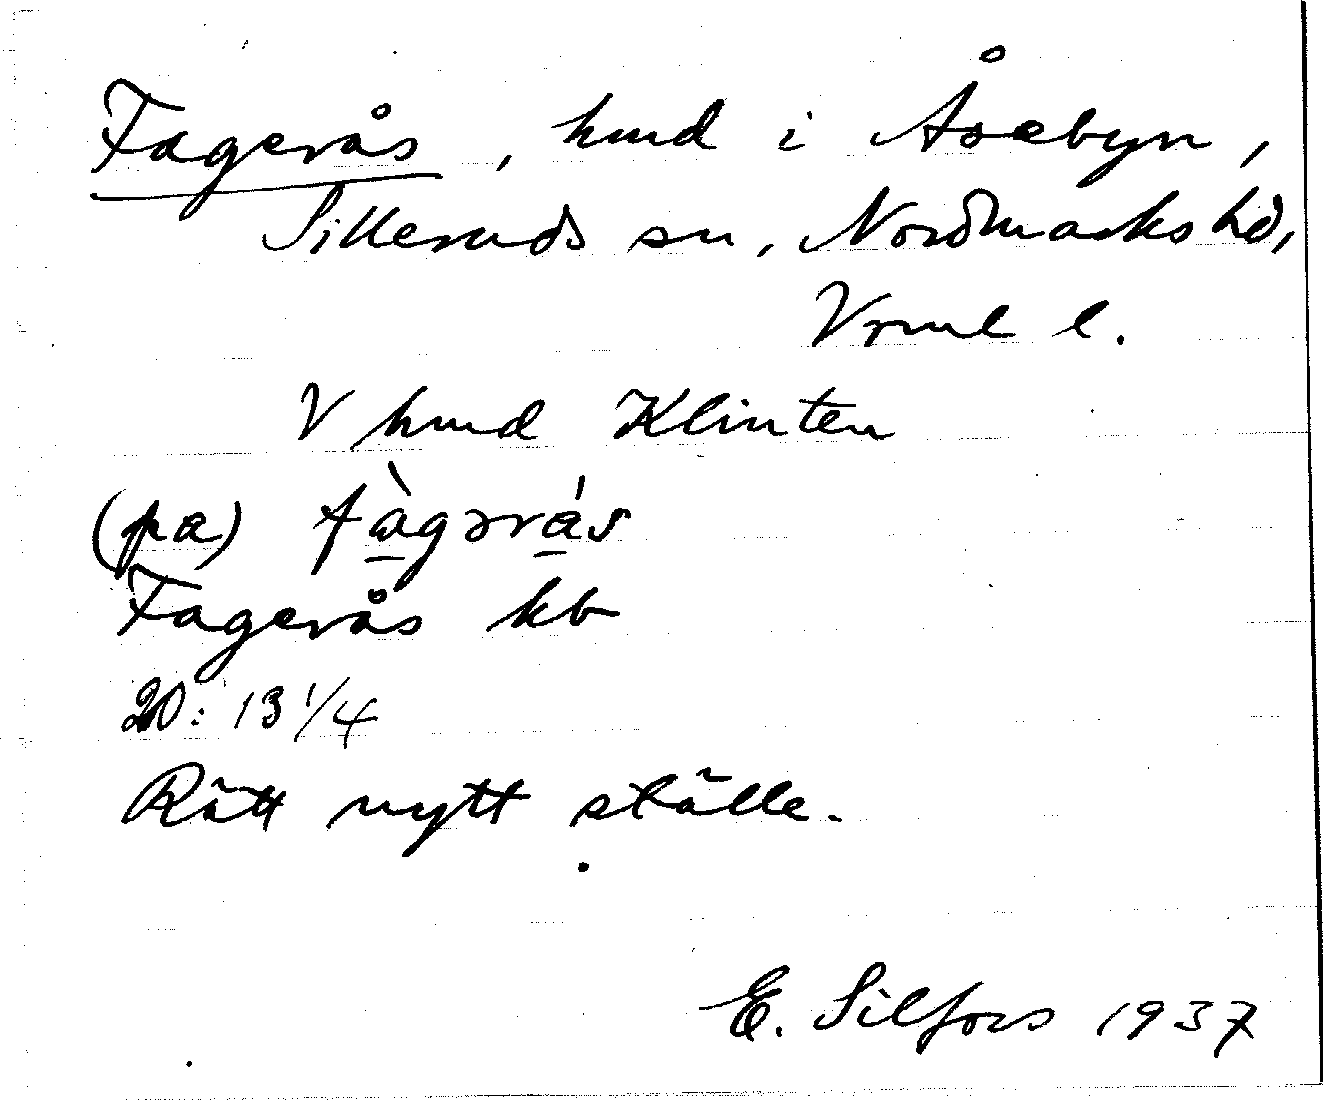 Fagerås, hmd i Åsebyn,
Silleruds sn, Nordmarks hd,
Vrml l.
V hmd Klinten
(pa) fàgərás
Fagerås kb
20: 13 1/4
Rätt nytt ställe.
E. Silfors 1937